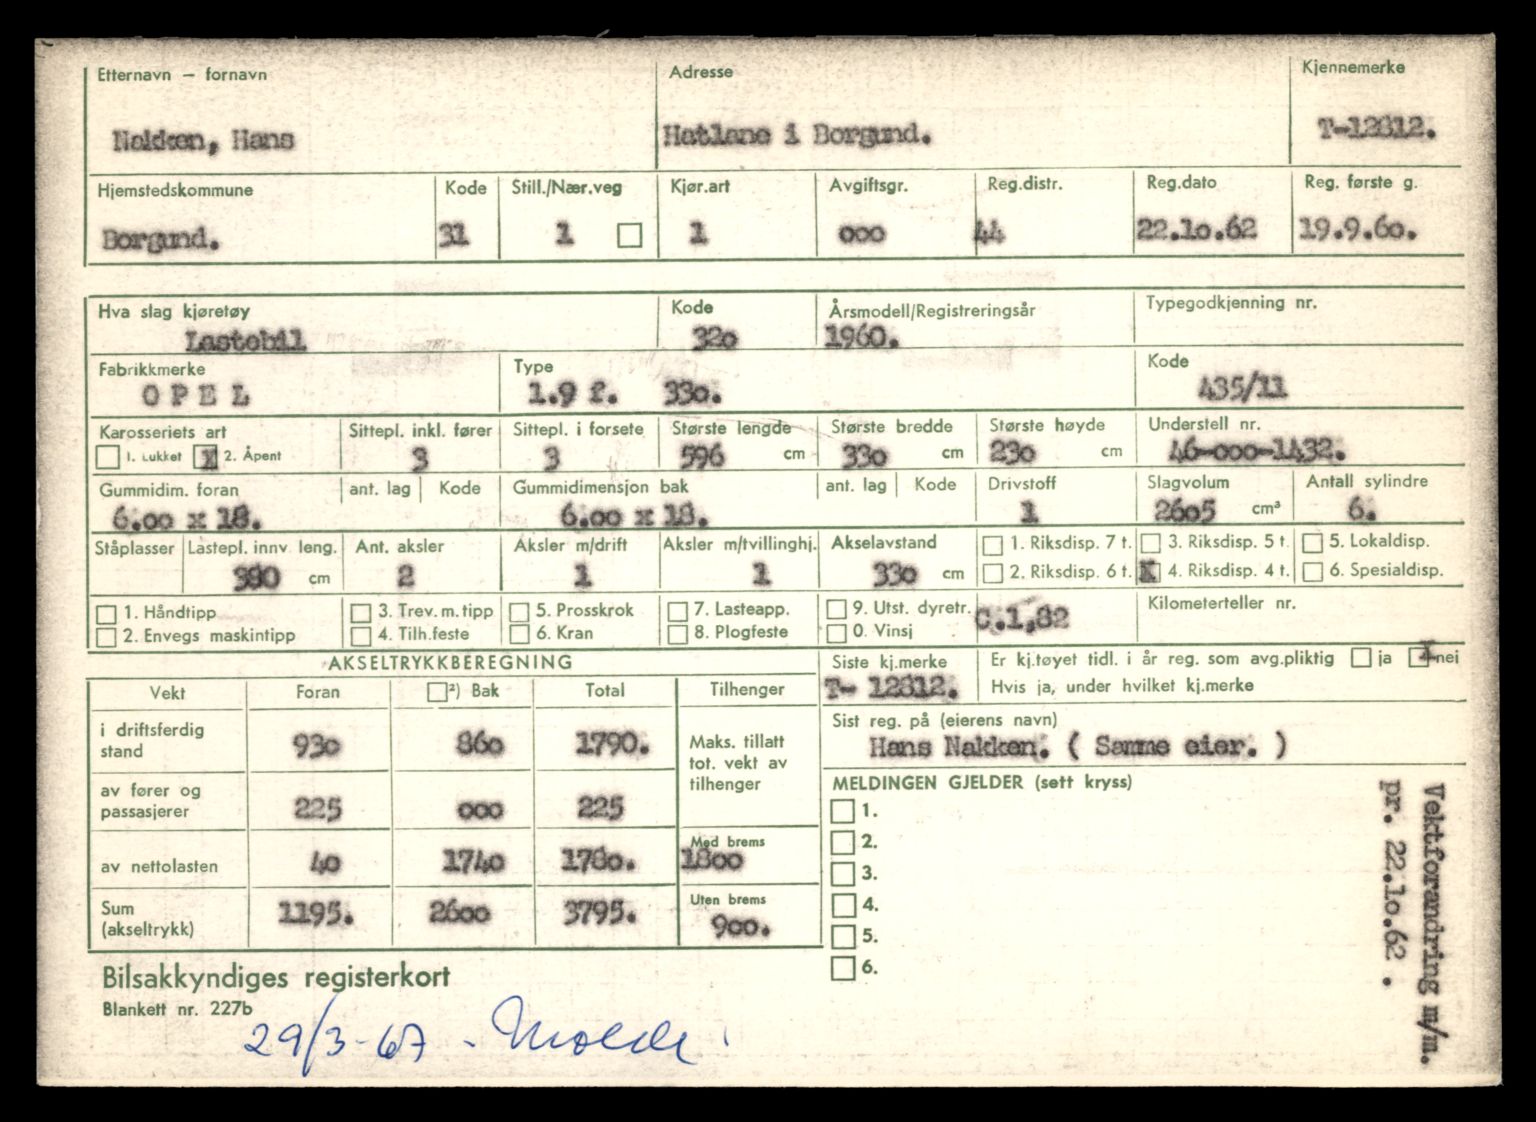 Etternavn — fornavn Adresse Kjennemerke
Nakken, Hans Hatlane i Borgund. T-12812.
Hjemstedskommune Kode Still./Nær.veg Kjør.art Avgiftsgr. Reg.distr. Reg.dato Reg. første g.
Borgund. 31 1 1 ooo 44 22.1o.62 19.9.6o.
Hva slag kjøretøy Kode Årsmodell/Registreringsår Typegodkjenning nr.
Lastebil 32o 1960.
Fabrikkmerke Type Kode
O P E L 1.9 f. 33o. 435/11
Karosseriets art Sittepl. inkl. fører Sittepl. i forsete Største lengde Største bredde Største høyde Understell nr.
1. Lukket X 2. Åpent 3 3 596 cm 33o cm 23o cm 46-ooo-1432.
Gummidim. foran ant. lag Kode Gummidimensjon bak ant. lag Kode Drivstoff Slagvolum Antall sylindre
6.oo x 18. 6.oo x 18. 1 26o5 cm³ 6.
Ståplasser Lastepl. innv. leng. Ant. aksler Aksler m/drift Aksler m/tvillinghj. Akselavstand 1. Riksdisp. 7 t. 3. Riksdisp. 5 t. 5. Lokaldisp.
cm 2 1 1 33o cm 2. Riksdisp. 6 t. X 4. Riksdisp. 4 t. 6. Spesialdisp.
1. Håndtipp 3. Trev. m. tipp 5. Prosskrok 7. Lasteapp. 9. Utst. dyretr. C.1,82 Kilometerteller nr.
2. Envegs maskintipp 4. Tilh.feste 6. Kran 8. Plogfeste 0. Vinsj
AKSELTRYKKBEREGNING Siste kj.merke Er kj.tøyet tidl. i år reg. som avg.pliktig ja nei
Vekt Foran ²) Bak Total Tilhenger T- 12812. Hvis ja, under hvilket kj.merke
i driftsferdig stand 93o 86o 1790. Maks. tillatt tot. vekt av tilhenger Sist reg. på (eierens navn)
Hans Nakken. ( Samme eier. )
av fører og passasjerer 225 ooo 225 MELDINGEN GJELDER (sett kryss)
1.
2.
av nettolasten 4o 174o 178o. Med brems 1800 3.
4.
Sum (akseltrykk) 1195. 26oo 3795. Uten brems 9oo. 5.
6.
Vektforandring m/m.
pr. 22.1o.62 .
Bilsakkyndiges registerkort
Blankett nr. 227b
29/3-67 - Molde